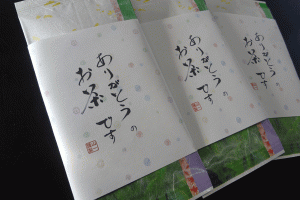 ありがとうの
お茶です
ありがとうの
お茶です
ありがとうの
お茶です